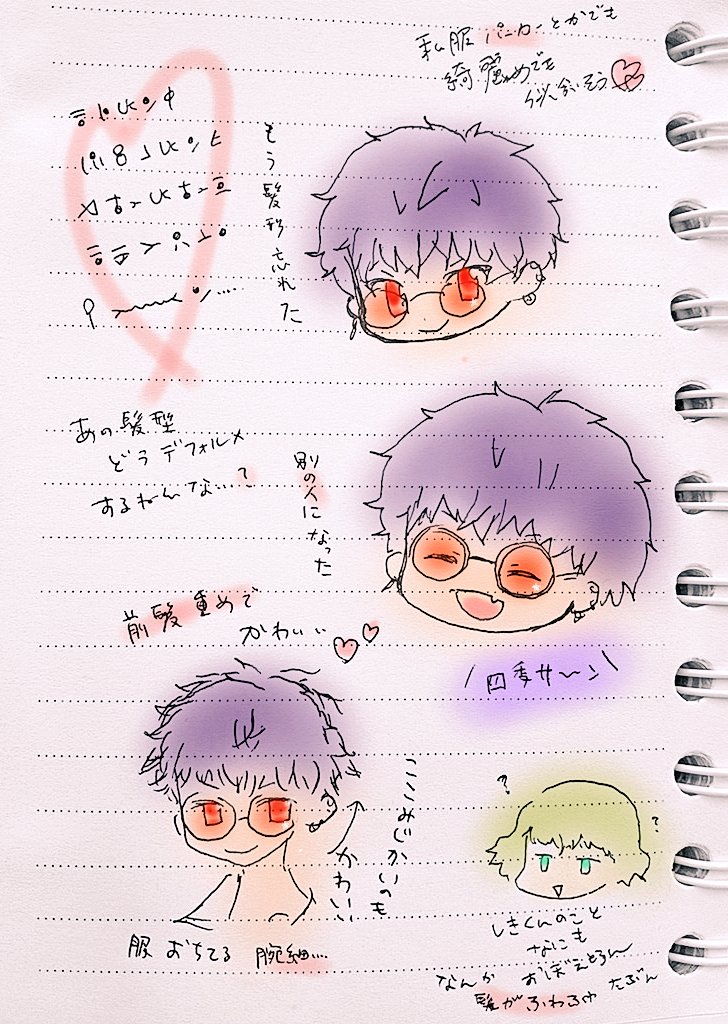 私服パーカーとかでも
綺麗めでも
似合いそう
もう髪形忘れた
あの髪型
どうデフォルメ
するねんな…?
別の人になった
前髪重めで
かわいい
\四季サーン/
ここみじかいのも
かわいい
服おちてる 腕細…
? ?
しきくんのこと
なにも
おぼえとらん
なんか
髪がふわふわ たぶん